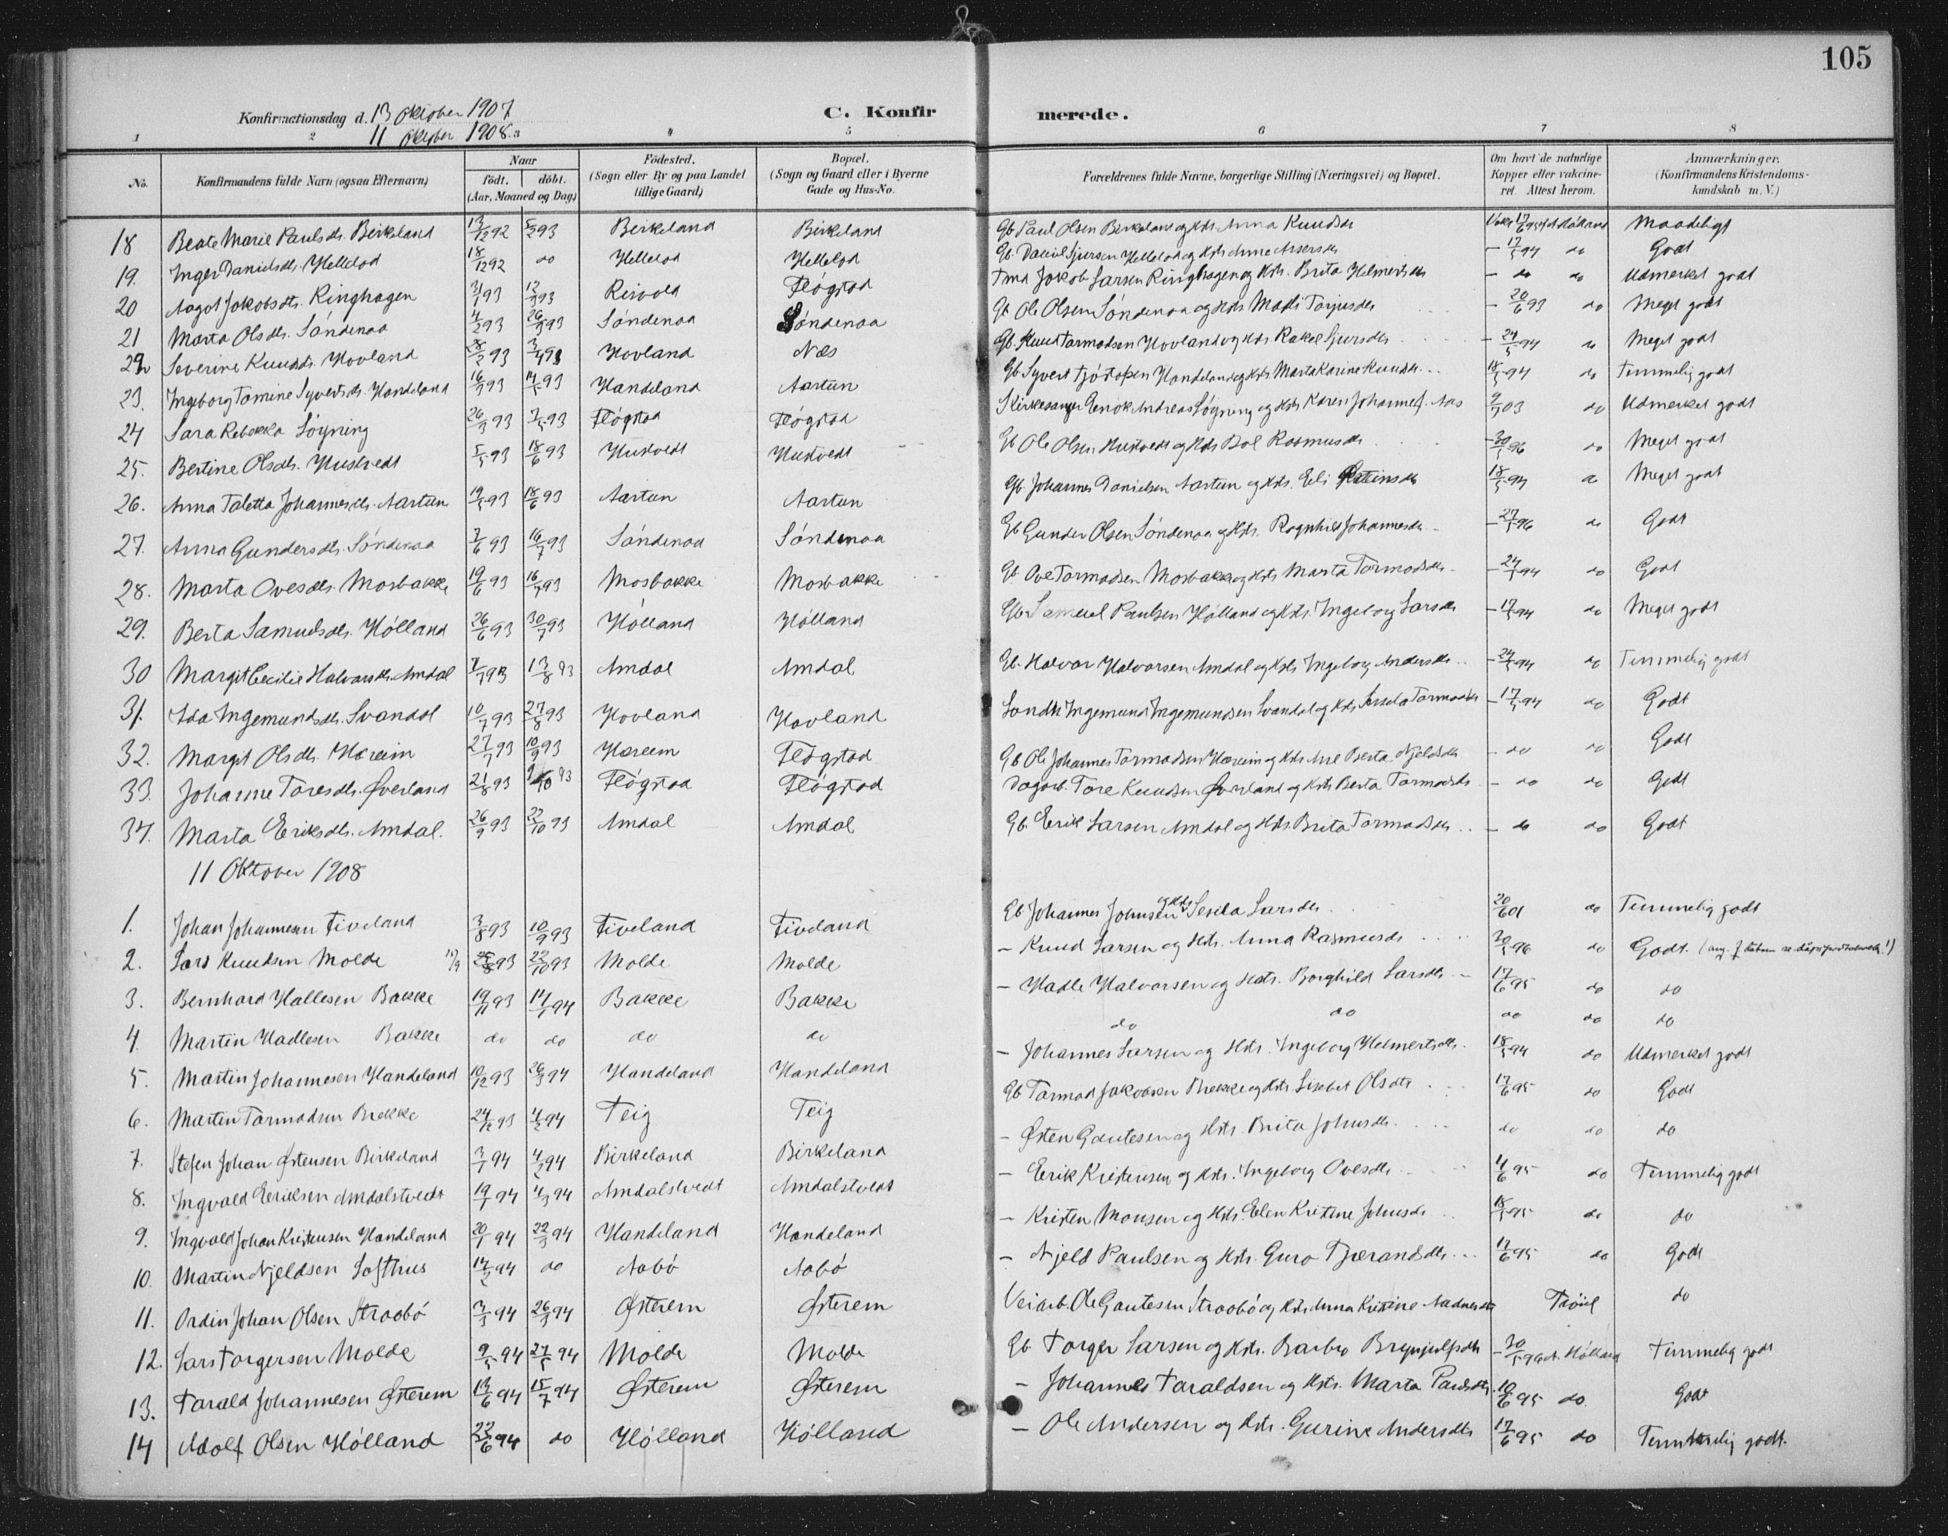 105
Konfirmationsdag d. 13 Oktober 1907
11 Oktober 1908.
C. Konfirmerede.
1 2 3 4 5 6 7 8
No. Konfirmandens fulde Navn (ogsaa Efternavn) Naar födt. döbt. (Aar, Maaned og Dag) Födested. (Sogn eller By og paa Landet tillige Gaard) Bopæl. (Sogn og Gaard eller i Byerne Gade og Hus-No. Forældrenes fulde Navne, borgerlige Stilling (Næringsvei) og Bopæl. Om havt de naturlige Kopper eller vaccineret. Attest herom. Anmærkninger. (Konfirmandens Kristendomskundskab m. V.)
18 Beate Marie Paulsdtr. Birkeland 13/12 92 5/2 93 Birkeland Birkeland Gb Paul Olsen Birkeland og Hstr. Anna Knudsdtr Maadeligt
19. Inger Danielsdtr. Hellelod 18/12 92 do Hellelod Hellelod Gb. Daniel Sjursen Hellelod og Hstr Anne Assersdtr – 17/5 94 do Godt
20 Aagot Jakobsdtr. Ringhagen 31/1 93 12/3 93 Flógstad Jakob Larsen Ringhagen og Hstr. Brita Helmertsdtr – do do Udmerket godt
21 Marta Olsdtr. Sóndenaa 4/2 93 26/3 93 Sóndenaa Sóndenaa Gb Ole Olsen Sóndenaa og Hstr Madli Torjusdtr – 20/6 93 do Meget godt
22 Severine Knudsdtr. Hovland 28/2 93 3/4 93 Hovland Næs Gb. Knud Tormodsen Hovland og Hstr. Rakel Sjursdtr – 24/5 94 do Meget godt
23. Ingeborg Tomine Syvertsdtr. Handeland 16/3 93 14/5 93 Handeland Aartun Gb Syvert Handeland og Hstr Marta Karine Knudsdtr 18/5 94 do Temmelig godt
24 Sara Rebekka Lóyning 26/3 93 7/5 93 Flógstad Flógstad Kirkesanger Enok Andreas Lóyning og Hstr Karen Johanne f. Aas 9/7 03 do Udmerket godt
25. Bertine Olsdtr. Hustvedt 5/5 93 18/6 93 Hustvedt Hustvedt Gb Ole Olsen Hustvedt og Hstr Bol Rasmusdtr – 30/5 96 do Meget godt
26. Anna Taletta Johannesdtr. Aartun 19/5 93 18/6 93 Aartun Aartun Gb. Johannes Danielsen Aartun og Hstr. Eli 18/5 94 do Meget godt
27. Anna Gundersdtr. Sóndenaa 7/6 93 16/7 93 Sóndenaa Sóndenaa Gb Gunder Olsen Sóndenaa og Hstr. Ragnhild Johannesdtr – 27/5 96 do Godt
28. Marta Ovesdtr. Mosbakke 19/6 93 16/7 93 Mosbakke Mosbakke Gb Ove Tormodsen Mosbakke og Hstr Marta Tormodsdtr – 24/5 94 do Godt
29. Berta Samuelsdtr. Hólland 26/6 93 30/7 93 Hólland Hólland Gb Samuel Paulsen Hólland og Hstr. Ingeborg Larsdtr – 17/5 94 do Meget godt
30 Margit Cecilie Halvorsdtr. Amdal 7/7 93 13/8 93 Amdal Amdal Gb. Halvor Halvorsen Amdal og Hstr Ingeborg Andersdtr – 24/5 94 do Temmelig godt
31. Ida Ingemundsdtr. Svandal 10/7 93 27/8 93 Hovland Hovland Ingemund Ingemundsen Svandal og Hstr Sesela Tormodsdtr – 17/5 94 do Godt
32. Margit Olsdtr. Hareim 27/7 93 10/9 93 Hareem Flógstad Gb Ole Johannes Tormodsen Hareim og Hstr Berta Njeldsdtr – do do Godt
33. Johanne Toresdtr. Øverland 21/8 93 Flógstad Flógstad Dagarb. Tore Knudsen Øverland og Hstr Berta Tormodsdtr – do do Godt
34. Marta Eriksdtr. Amdal. 26/9 93 22/10 93 Amdal Amdal Gb. Erik Larsen Amdal og Hstr. Brita Tormodsdtr – do do Godt
11 Oktober 1908
1. Johan Johannesen Fiveland 3/8 93 10/9 93 Fiveland Fiveland Gb Johannes Johnsen og Hstr Sesela Larsdtr 20/6 01 do Temmelig godt
2. Lars Knudsen Molde 22/10 93 Molde Molde – Knud Larsen og Hstr. Anna Rasmusdtr 30/5 96 do Godt.
3. Bernhard Hallesen Bakke 19/11 93 14/1 94 Bakke Bakke – Hadle Halvorsen og Hstr. Borghild Larsdtr – 17/6 95 do do
4. Martin Hadlesen Bakke do do do do do do do do do
5. Martin Johannesen Handeland 10/12 93 26/3 94 Handeland Handeland – Johannes Larsen og Hstr. Ingeborg Helmertsdtr. 18/5 94 do Udmerket godt
6. Martin Tormodsen Brekke 24/12 93 4/2 94 Teig Teig Gb Tormod Jakobsen Brekke og Hstr Lisabet Olsdtr 17/6 95 do Godt
7. Stefen Johan Østensen Birkeland 3/1 94 4/2 94 Birkeland Birkeland – Østen Gautesen og Hstr. Brita Johnsdtr. do do do
8. Ingvald Eriksen Amdalstvedt 19/1 94 4/3 94 Amdalstvedt Amdalstvedt – Erik Kristensen og Hstr. Ingeborg Ovesdtr 4/6 95 do Temmelig godt
9. Ingvald Johan Kristensen Handeland 20/1 94 22/3 94 Handeland Handeland – Kristen Monsen og Hstr. Elen Kristine Johnsdtr 18/5 95 do do
10. Martin Njeldsen Lofthus 14/2 94 do Aabó Aabó – Njeld Paulsen og Hstr. Guro Tjerandsdtr 17/6 95 do Godt
11. Ordin Johan Olsen Straabó 3/3 94 26/3 94 Østerem Østerem Veiarb. Ole Gautesen Straabó og Hstr Anna Kristine Aadnesdtr do
12. Lars Torgersen Molde 9/5 94 27/5 94 Molde Molde Gb Torger Larsen og Hstr. Barbro Brynjulfsdtr – 30/5 96 Hólland Temmelig godt
13. Tarald Johannesen Østerem 13/6 94 15/7 94 Østerem Østerem – Johannes Taraldsen og Hstr. Marta Paulsdtr. 10/6 95 do Godt
14 Adolf Olsen Hólland 22/6 94 do Hólland Hólland – Ole Andersen og Hstr. Gurine Andersdtr 17/6 95 do Temmelig godt.